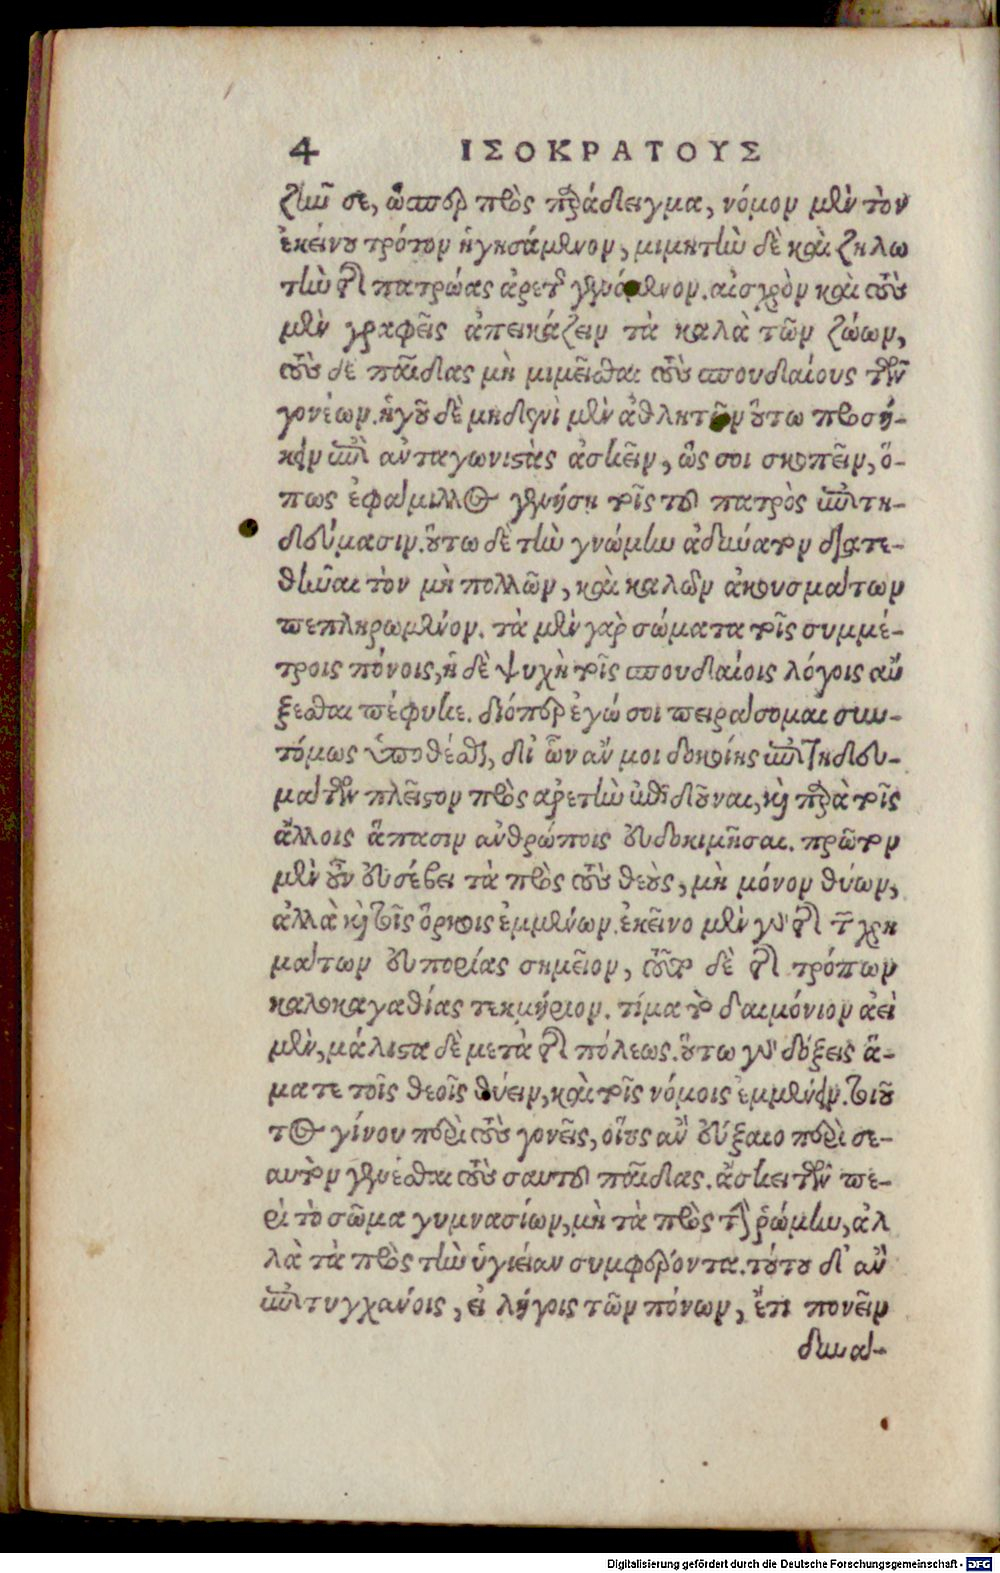 4 ΙΣΟΚΡΑΤΟΥΣ
ζῆν σε, ὥσπερ πρὸς παράδειγμα, νόμον μὲν τὸν
ἐκείνου τρόπον ἡγησάμενον, μιμητὴν δὲ καὶ ζηλω
τὴν τῆς πατρώας ἀρετῆς γενόμενον. αἰσχρὸν καὶ τοὺς
μὲν γραφεῖς ἀπεικάζειν τὰ καλὰ τῶν ζώων,
τοὺς δὲ παῖδας μὴ μιμεῖσθαι τοὺς σπουδαίους τῶν
γονέων. ἡγοῦ δὲ μηδενὶ μὲν ἀθλητῶν οὕτω προσή-
κειν ἐπὶ ἀνταγωνιστὰς ἀσκεῖν, ὥς σοι σκοπεῖν, ὅ-
πως ἐφάμιλλος γενήσῃ τοῖς τοῦ πατρὸς ἐπιτη-
δεύμασιν. οὕτω δὲ τὴν γνώμην ἀδύνατον διατε-
θῆναι τὸν μὴ πολλῶν, καὶ καλῶν ἀκουσμάτων
πεπληρωμένον. τὰ μὲν γὰρ σώματα τοῖς συμμέ-
τροις πόνοις, ἡ δὲ ψυχὴ τοῖς σπουδαίοις λόγοις αὔ
ξεσθαι πέφυκε. διόπερ ἐγώ σοι πειράσομαι συν-
τόμως ὑποθέσθαι, δι' ὧν ἄν μοι δοκοίης ἐπιτηδευ-
μάτων πλεῖστον πρὸς ἀρετὴν ἐπιδοῦναι, καὶ παρὰ τοῖς
ἄλλοις ἅπασιν ἀνθρώποις εὐδοκιμῆσαι. πρῶτον
μὲν οὖν εὐσέβει τὰ πρὸς τοὺς θεοὺς, μὴ μόνον θύων,
ἀλλὰ καὶ τοῖς ὅρκοις ἐμμένων. ἐκεῖνο μὲν γὰρ τῆς τῶν χρη
μάτων εὐπορίας σημεῖον, τοῦτο δὲ τῆς τρόπων
καλοκαγαθίας τεκμήριον. τίμα τὸ δαιμόνιον ἀεὶ
μὲν, μάλιστα δὲ μετὰ τῆς πόλεως. οὕτω γὰρ δόξεις ἅ-
μα τε τοῖς θεοῖς θύειν, καὶ τοῖς νόμοις ἐμμένειν. τοιοῦ
τος γίνου περὶ τοὺς γονεῖς, οἵους ἂν εὔξαιο περὶ σε-
αυτὸν γενέσθαι τοὺς σαυτοῦ παῖδας. ἄσκει τῶν πε-
ρὶ τὸ σῶμα γυμνασίων, μὴ τὰ πρὸς τὴν ῥώμην, ἀλ
λὰ τὰ πρὸς τὴν ὑγιείαν συμφέροντα. τούτου δ' ἂν
ἐπιτυγχάνοις, εἰ λήγοις τῶν πόνων, ἔτι πονεῖν
δυνά-
Digitalisierung gefördert durch die Deutsche Forschungsgemeinschaft - DFG